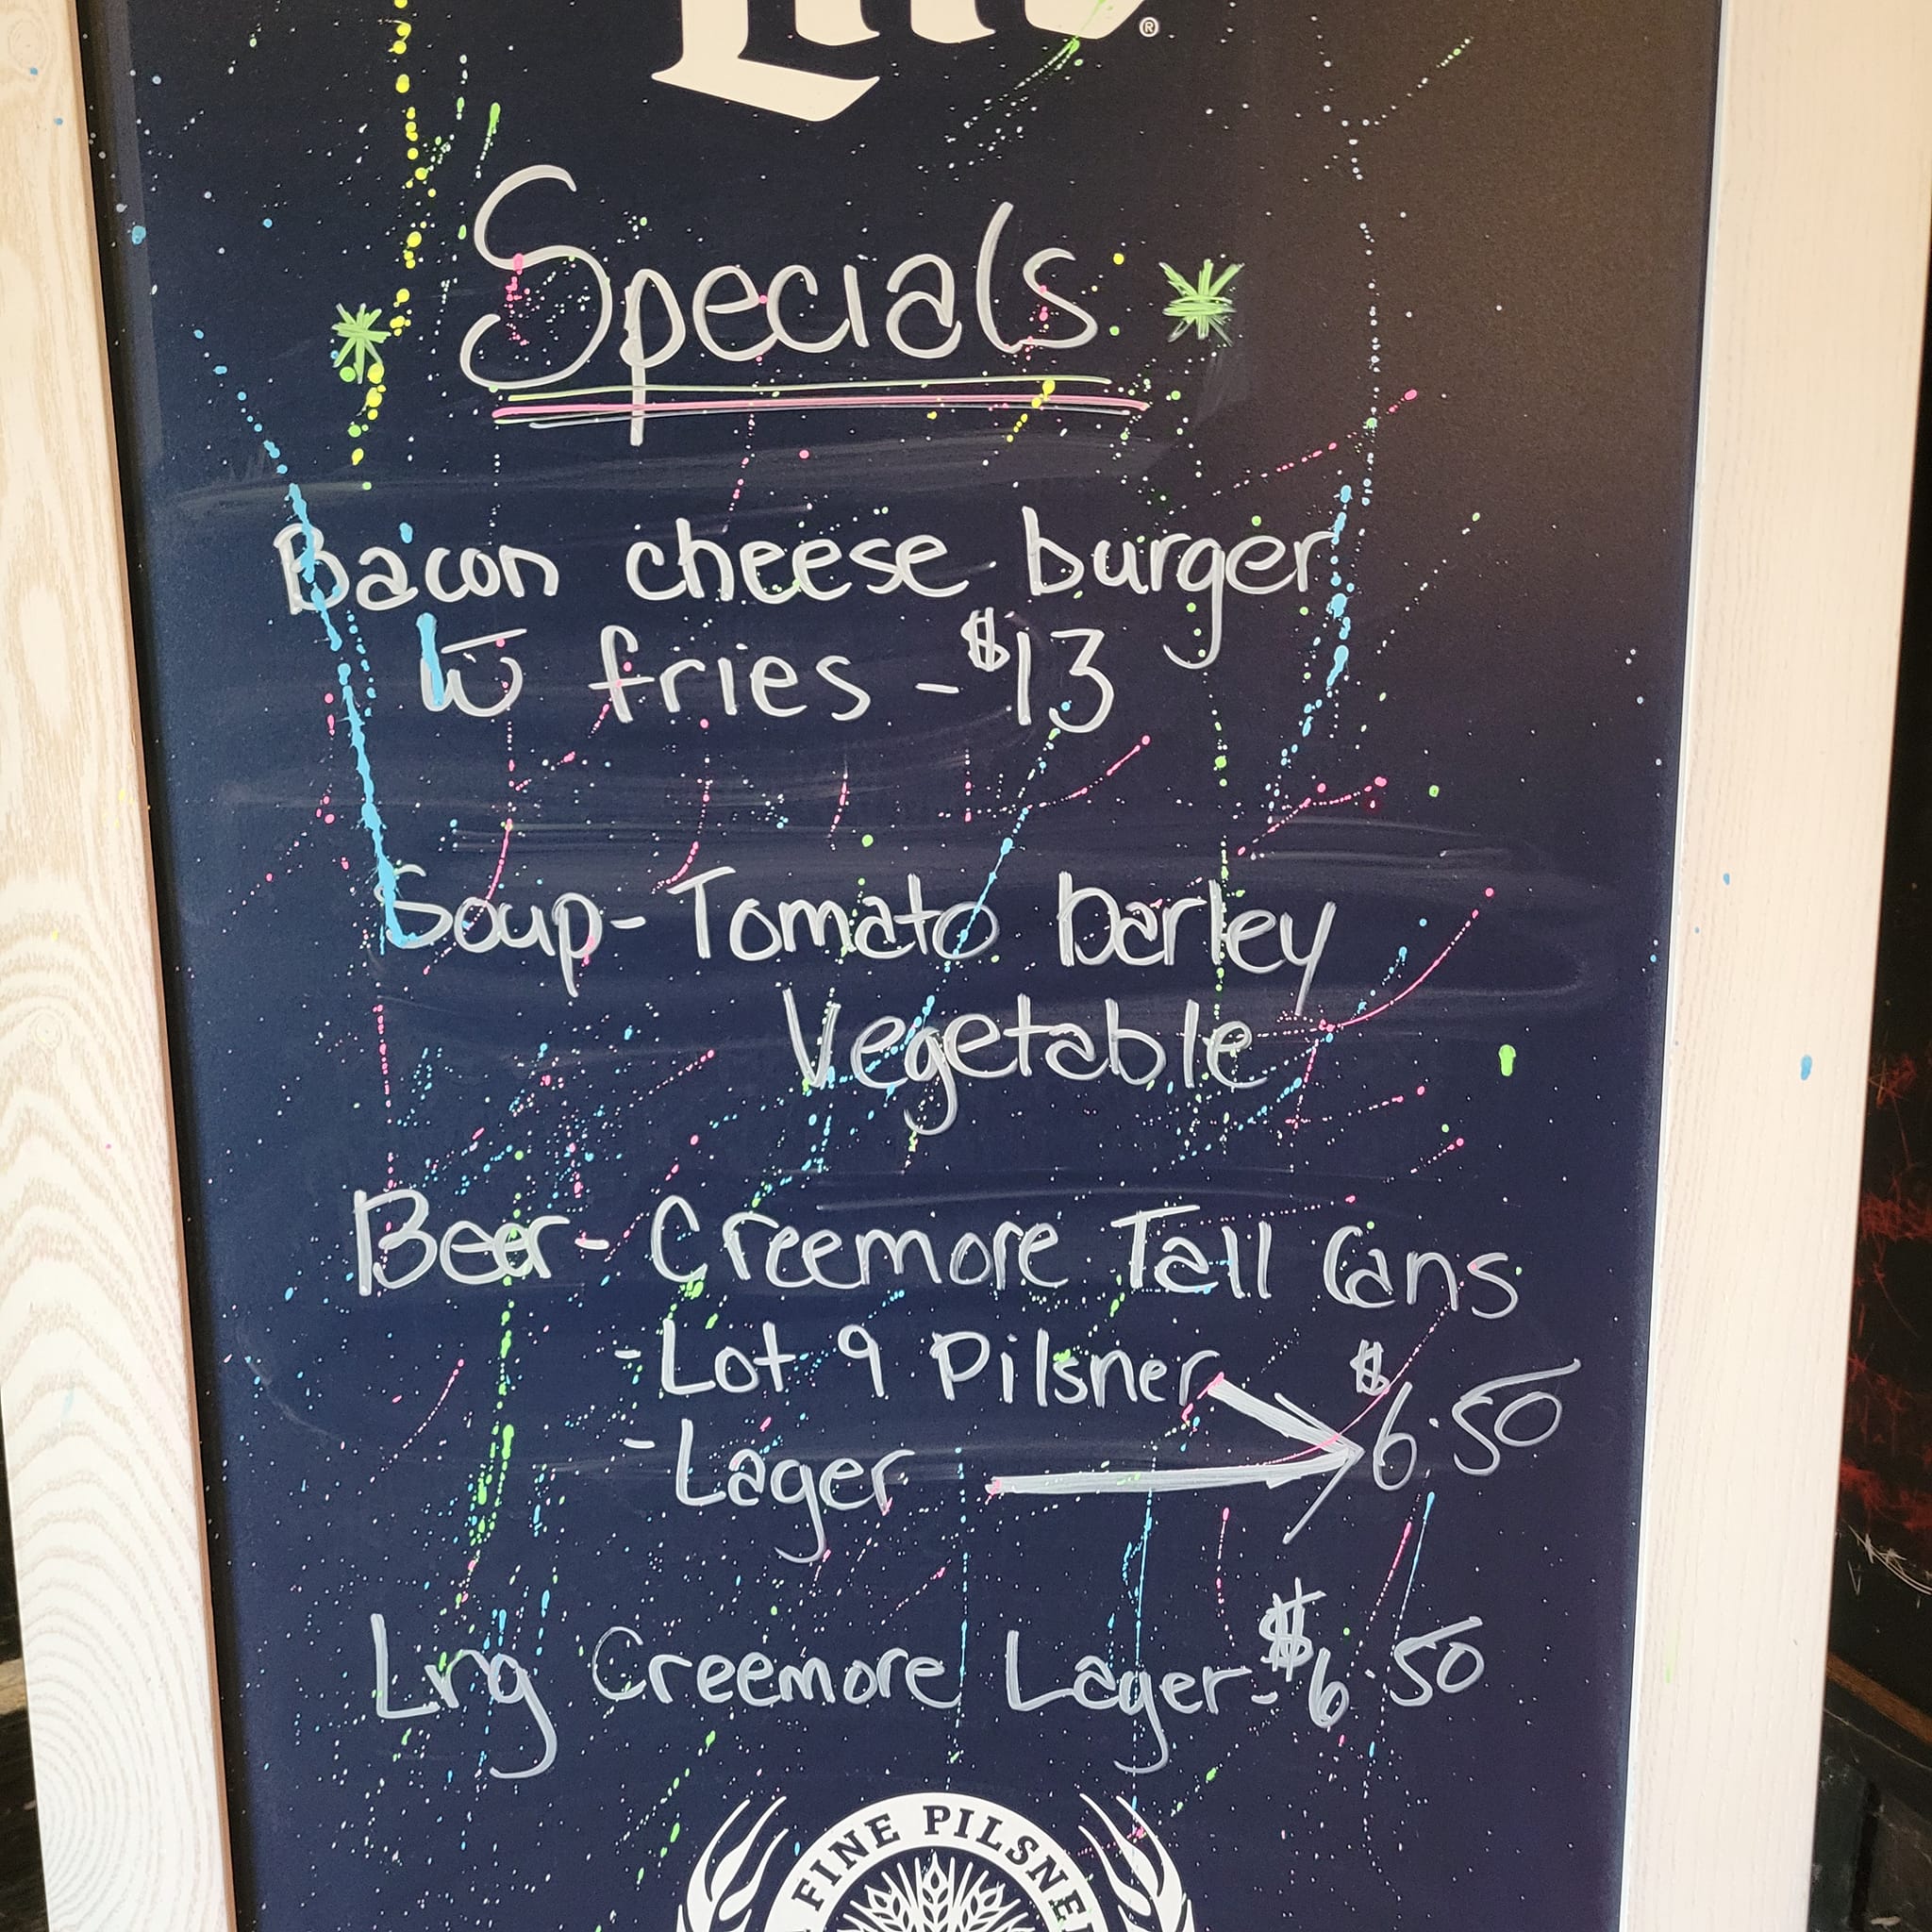 Lite®
Specials
Bacon cheese burger
w̄ fries - $13
Soup - Tomato barley
Vegetable
Beer - Creemore Tall Cans
- Lot 9 Pilsner
$6.50
- Lager
Lrg Creemore Lager - $6.50
FINE PILSNER